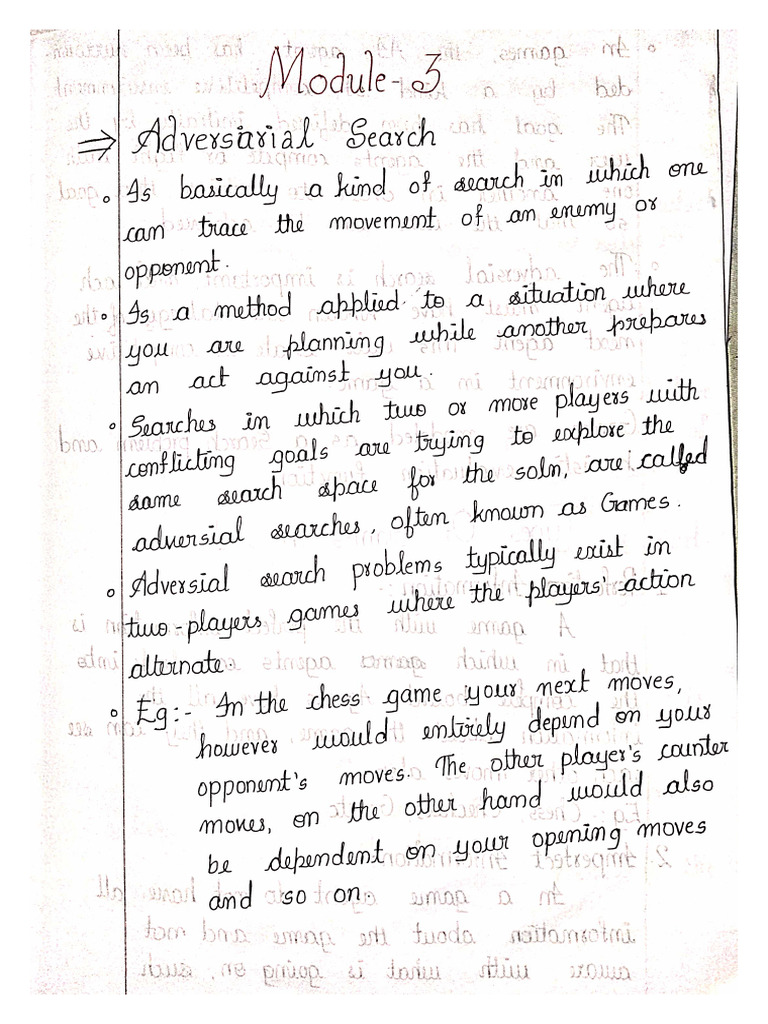 Module-3
⇒ Adversarial Search
∘ Is basically a kind of search in which one
can trace the movement of an enemy or
opponent.
∘ Is a method applied to a situation where
you are planning while another prepares
an act against you.
∘ Searches in which two or more players with
conflicting goals are trying to explore the
same search space for the soln, are called
adversial searches, often known as Games.
∘ Adversial search problems typically exist in
two-players games where the players' action
alternate.
∘ Eg:- In the chess game your next moves,
however would entirely depend on your
opponent's moves. The other player's counter
moves, on the other hand would also
be dependent on your opening moves
and so on.